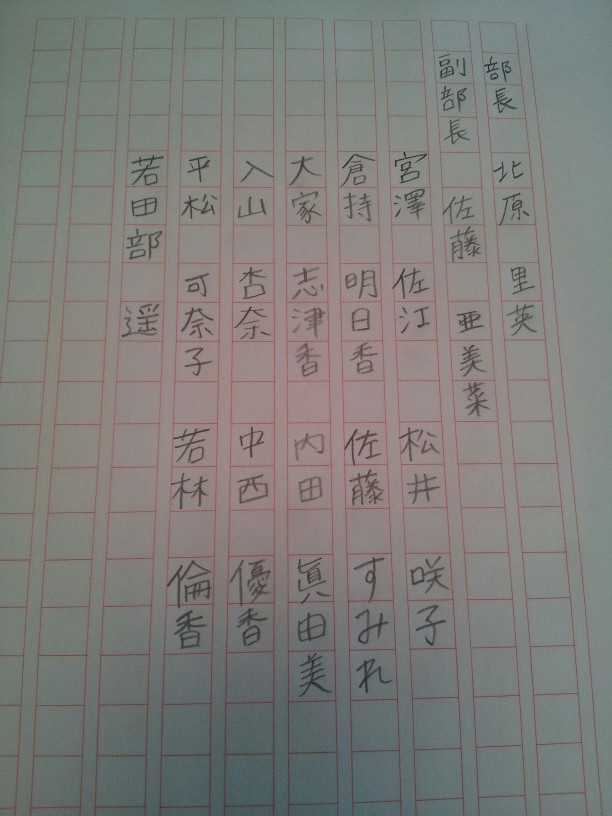 部長 北原 里英
副部長 佐藤 亜美菜
宮澤 佐江 松井 咲子
倉持 明日香 佐藤 すみれ
大家 志津香 内田 眞由美
入山 杏奈 中西 優香
平松 可奈子 若林 倫香
若田部 遥